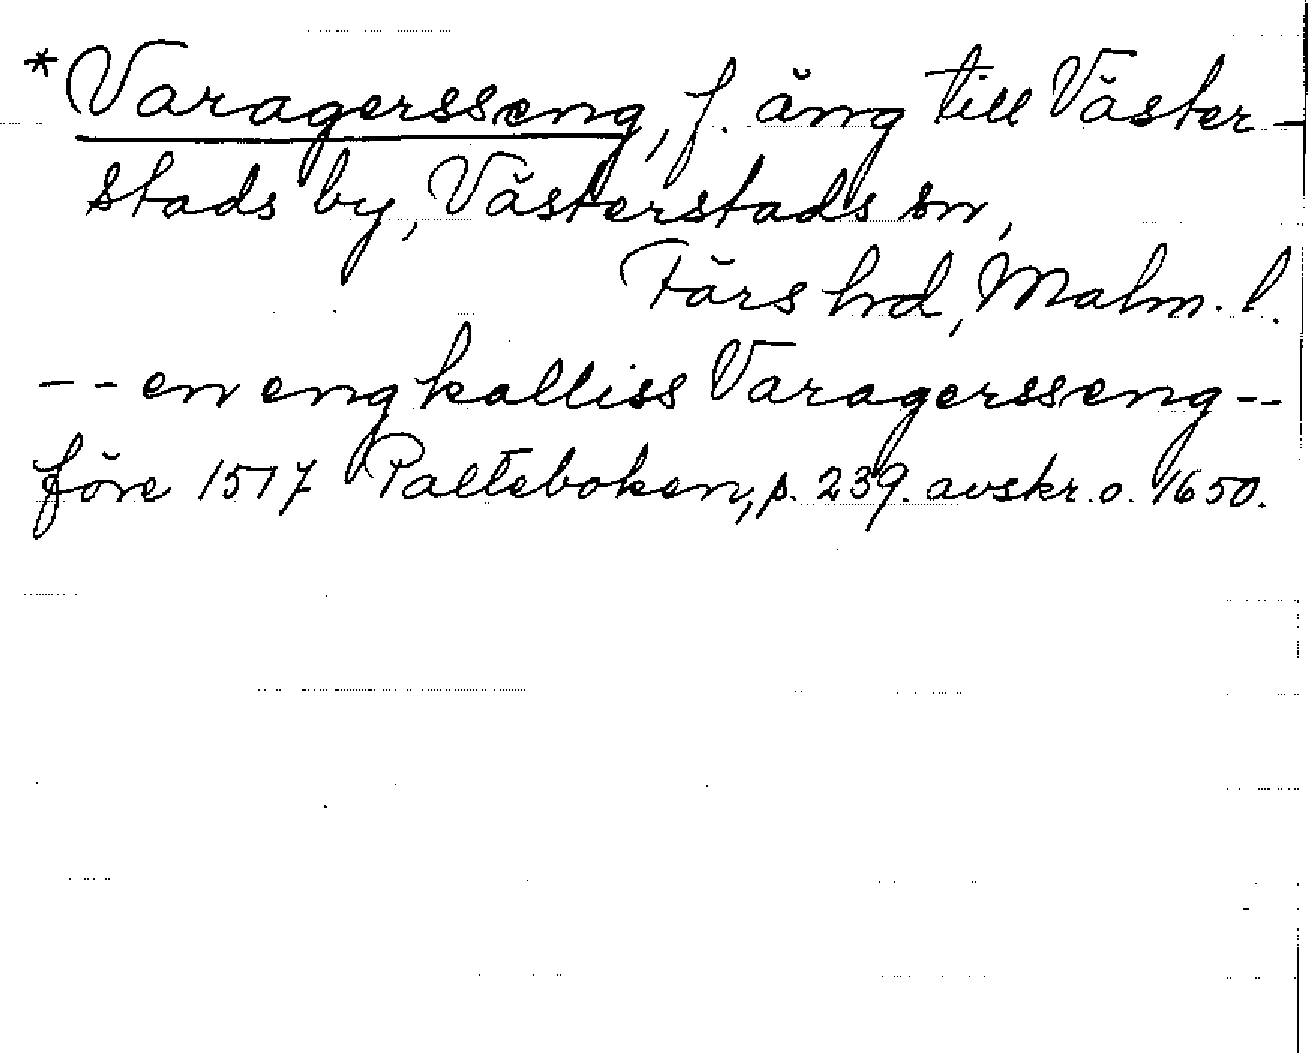 *Varagersseng, f. äng till Väster-
stads by, Västerstads sn,
Färs hd, Malm. l.
-- en eng kalliss Varagersseng --
före 1517 Palteboken, p. 239. avskr. o. 1650.